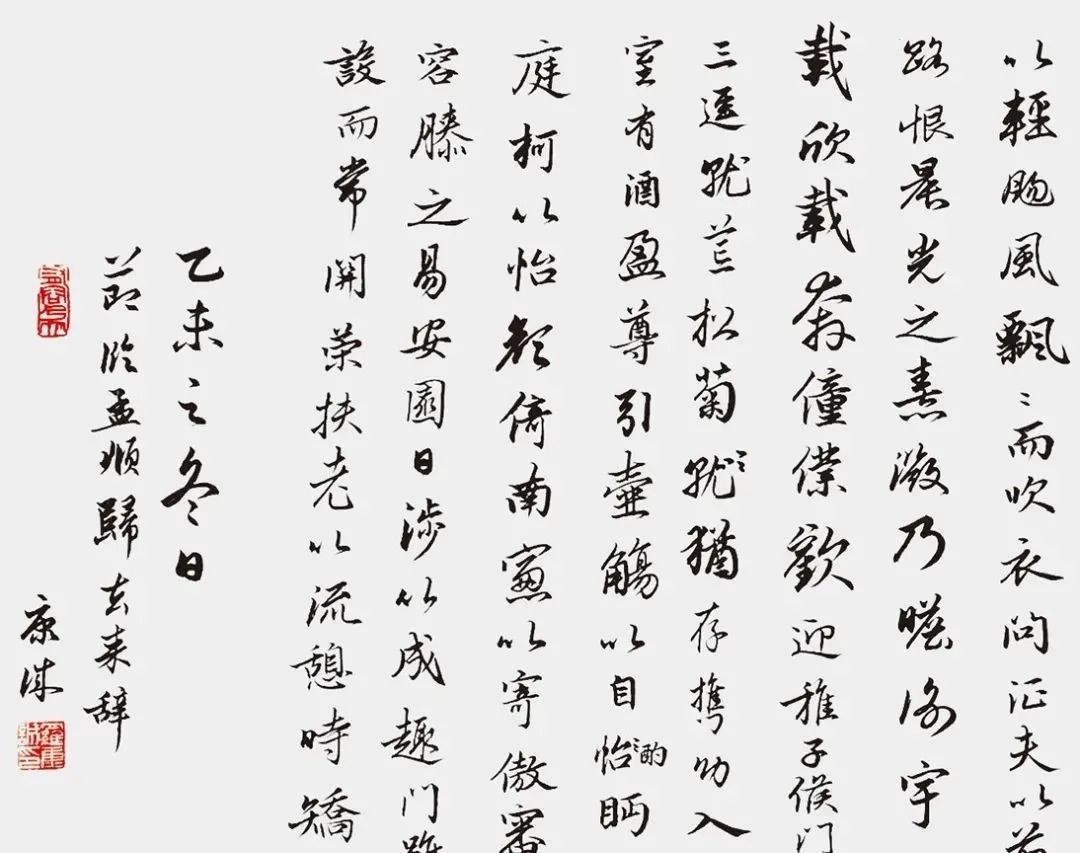 以輕颺風飄〻而吹衣問征夫以
路恨晨光之熹微乃瞻衡宇
載欣載奔僮僕歡迎稚子候門
三逕就荒松菊就〻猶存攜幼入
室有酒盈尊引壺觴以自怡〻酌眄
庭柯以怡顏倚南窗以寄傲審
容膝之易安園日涉以成趣門雖
設而常開策扶老以流憩時矯
乙未之冬日
節臨孟頫歸去来辭
康誠